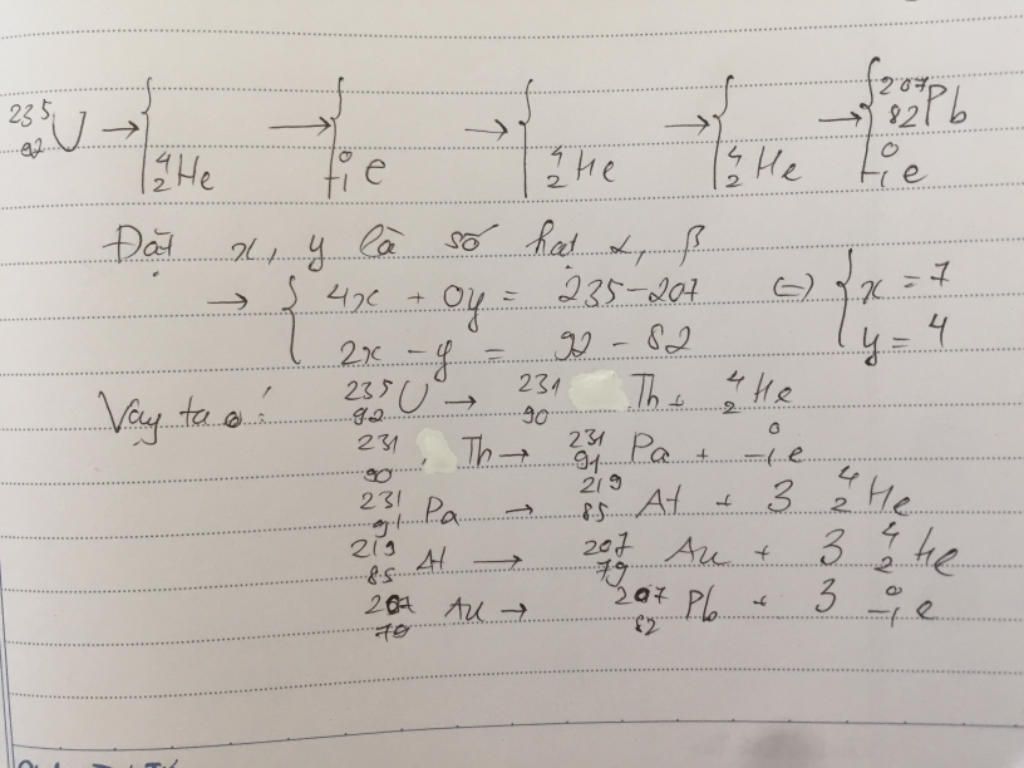 ²³⁵₉₂U → { ⁴₂He → { ⁰₋₁e → { ⁴₂He → { ⁴₂He → { ²⁰⁷₈₂Pb ⁰₋₁e
Đặt x, y là số hạt α, β
→ { 4x + 0y = 235-207 (=) { x = 7
2x - y = 92 - 82 y = 4
Vậy ta có: ²³⁵₉₂U → ²³¹₉₀Th + ⁴₂He
²³¹₉₀Th → ²³¹₉₁Pa + ⁰₋₁e
²³¹₉₁Pa → ²¹⁹₈₅At + 3 ⁴₂He
²¹⁹₈₅At → ²⁰⁷₇₉Au + 3 ⁴₂He
²⁰⁷₇₉Au → ²⁰⁷₈₂Pb + 3 ⁰₋₁e